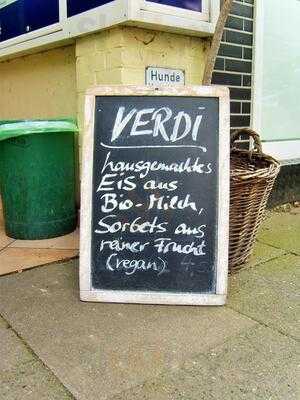 Hunde
VERDI
hausgemachtes
Eis aus
Bio-Milch,
Sorbets aus
reiner Frucht
(vegan)